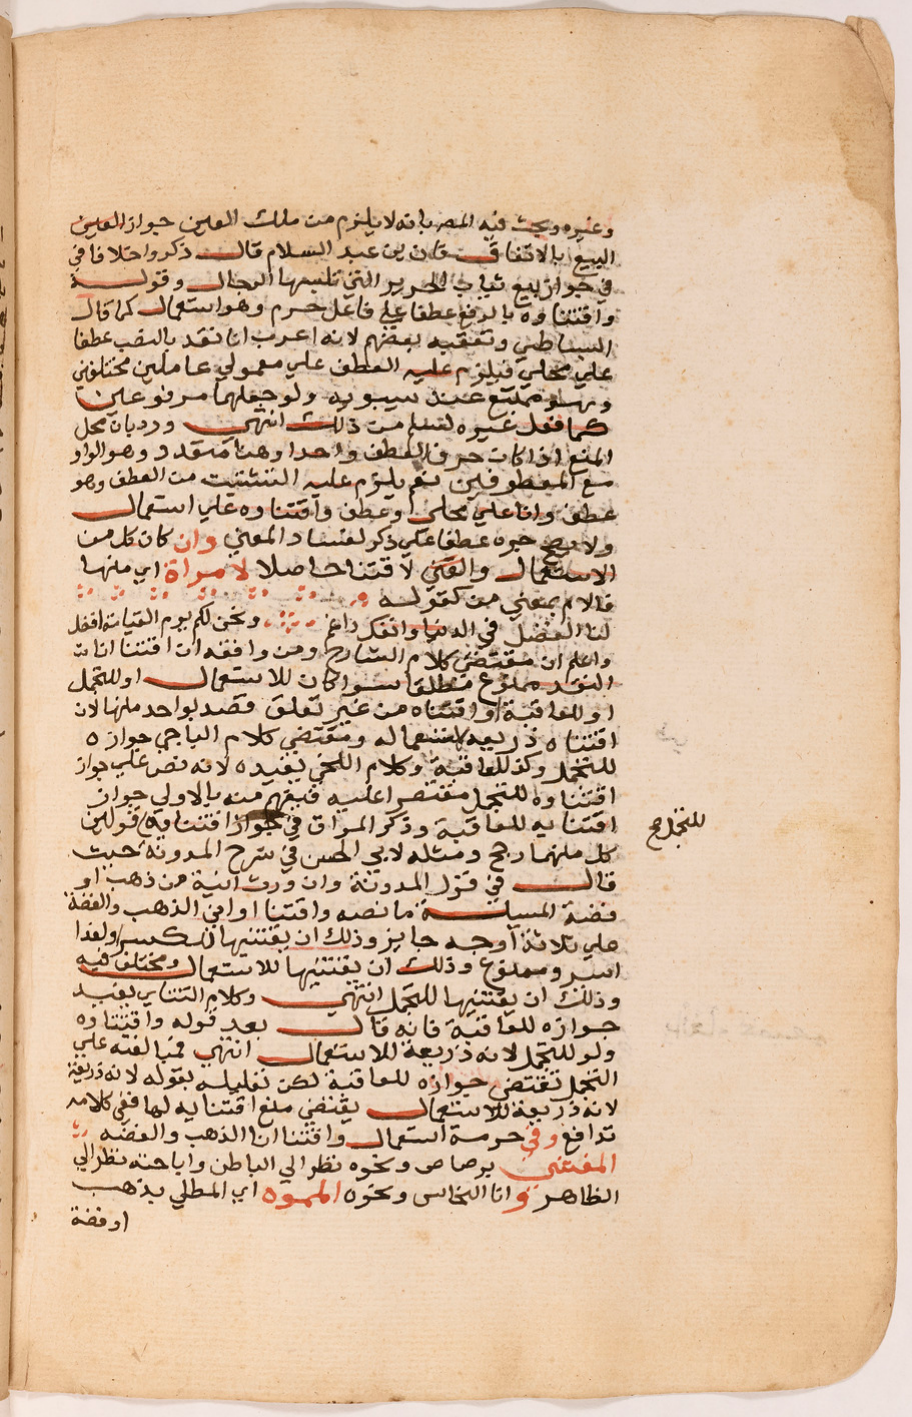 وغيره وبحث فيه المص بانه لا يلزم من ملك العين جواز العين
البيع بالاتفاق فان بن عبد السلام قال ذكروا خلافا في
في جواز بيع ثياب الحرير التي تلبسها الرجال وقوله
واقتناوه بالرفع عطفا علي فاعل حرم وهو استعمال كما قال
البساطي وتعقبه بعضهم لانه اعرب انا نقد بالنصب عطفا
علي محلي فيلزم عليه العطف علي معمولي عاملين مختلفين
وهو ممتنع عند سيبويه ولو جعلهما مرفوعين
كما فعل غيره لسلم من ذلك انتهي ورد بان محل
المنع اذا كان حرف العطف واحدا وهنا متعدد وهو الواو
مع المعطوفين نعم يلزم عليه التشتيت من العطف وهو
عطف وانا علي محلي وعطف واقتناوه علي استعمال
ولا يصح جره عطفا علي ذكر لفساد المعني وان كان كل من
الاستعمال والقني لاقتنا حاصلا لامراة اي منها
فاللام بمعني من كقوله
لنا الفضل في الدنيا وانفك راغم ونحن لكم يوم القيامة افضل
واعلم ان مقتضي كلام الشارح ومن وافقه ان اقتنا انا ت
النقد ممنوع مطلقا سوا كان للاستعمال او للتجمل
او للعاقبة او اقتناه من غير تعلق قصد بواحد منها لان
اقتناه ذريعة لاستعماله ومقتضي كلام الباجي جوازه
للتجمل وكذا للعاقبة وكلام اللخمي يفيده لانه نص علي جواز
اقتناوه للتجمل مقتصرا عليه فيفهم منه بالاولي جواز
اقتنايه للعاقبة وذكر المواق في جواز اقتنايه قولين
للتجمل صح
كل منهما رجح ومثله لابي الحسن في شرح المدونة حيث
قال في قول المدونة وان ورث انية من ذهب او
فضة المسيلة ما نصه واقتنا اواني الذهب والفضة
علي ثلاثة اوجه جايز وذلك ان يقتنيها للكسر او لفدا
اسر وممنوع وذلك ان يقتنيها للاستعمال ومختلف فيه
وذلك ان يقتنيها للتجمل انتهي وكلام التتاي يفيد
جوازه للعاقبة فانه قال بعد قوله واقتناوه
ولو للتجمل لانه ذريعة للاستعمال انتهي فمبالغته علي
التجمل تقتضي جوازه للعاقبة لكن تعليله بقوله لانه ذريعة
لانه ذريعة للاستعمال يقتضي منع اقتنايه لها ففي كلامه
تدافع وفي حرمة استعمال واقتنا انا الذهب والفضة
المغشي برصاص ونحوه نظرا الي الباطن واباحته نظرا الي
الظاهر و انا النحاس ونحوه المموه اي المطلي بذهب
او فضة